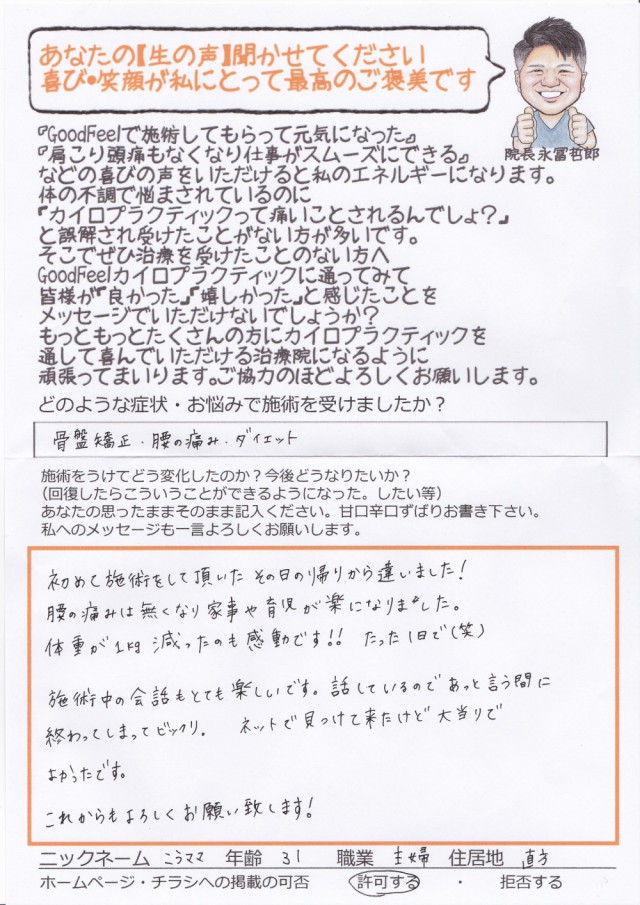 あなたの【生の声】聞かせてください
喜び・笑顔が私にとって最高のご褒美です
院長永冨哲郎
『GoodFeelで施術してもらって元気になった』
『肩こり頭痛もなくなり仕事がスムーズにできる』
などの喜びの声をいただけると私のエネルギーになります。
体の不調で悩まされているのに
「カイロプラクティックって痛いことされるんでしょ？」
と誤解され受けたことがない方が多いです。
そこでぜひ治療を受けたことのない方へ
GoodFeelカイロプラクティックに通ってみて
皆様が「良かった」「嬉しかった」と感じたことを
メッセージでいただけないでしょうか？
もっともっとたくさんの方にカイロプラクティックを
通して喜んでいただける治療院になるように
頑張ってまいります。ご協力のほどよろしくお願いします。
どのような症状・お悩みで施術を受けましたか？
骨盤矯正・腰の痛み・ダイエット
施術をうけてどう変化したのか？今後どうなりたいか？
（回復したらこういうことができるようになった。したい等）
あなたの思ったままそのまま記入ください。甘口辛口ずばりお書き下さい。
私へのメッセージも一言よろしくお願いします。
初めて施術をして頂いたその日の帰りから違いました！
腰の痛みは無くなり家事や育児が楽になりました。
体重が1kg減ったのも感動です!! たった1日で(笑)
施術中の会話もとても楽しいです。話しているのであっと言う間に
終わってしまってビックリ。 ネットで見つけて来たけど大当りで
よかったです。
これからもよろしくお願い致します！
ニックネーム こうママ 年齢 31 職業 主婦 住居地 直方
ホームページ・チラシへの掲載の可否 許可する ・ 拒否する